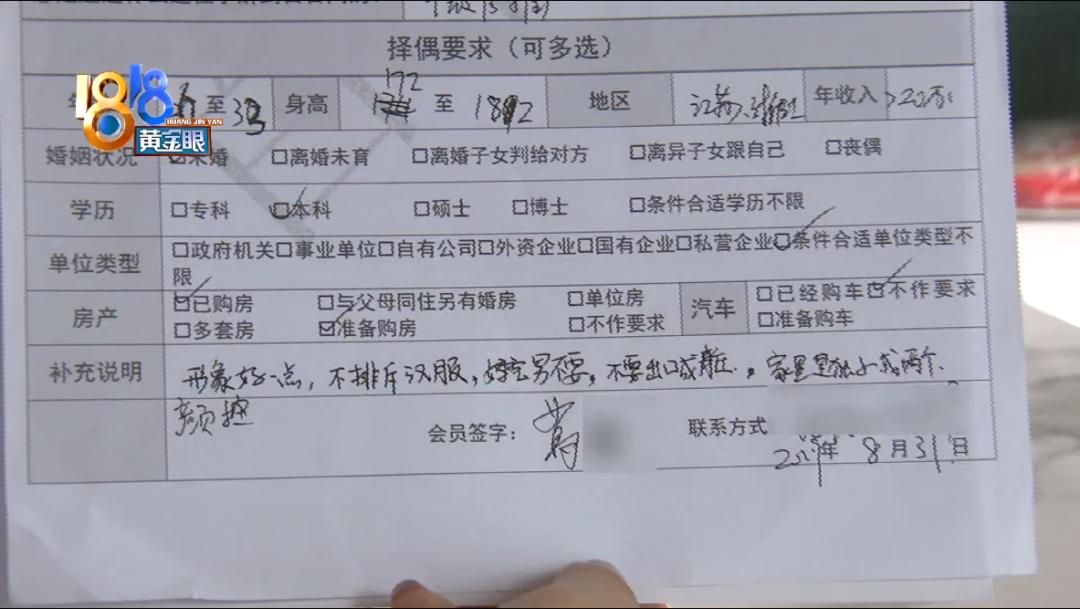 择偶要求（可多选）
至 33 身高 172 至 182 地区 江苏、浙江 年收入 >20万
婚姻状况 未婚 □离婚未育 □离婚子女判给对方 □离异子女跟自己 □丧偶
学历 □专科 ☑本科 □硕士 □博士 □条件合适学历不限
单位类型 □政府机关□事业单位□自有公司□外资企业□国有企业□私营企业☑条件合适单位类型不
限
房产 ☑已购房 □与父母同住另有婚房 □单位房 汽车 □已经购车☑不作要求
□多套房 ☑准备购房 □不作要求 □准备购车
补充说明 形象好一点，不排斥汉服，妈宝男不要，不要出口成脏，家里是独子或两个
颜控
会员签字： 联系方式
年 8 月 31 日
1818
HUANG JIN YAN
黄金眼